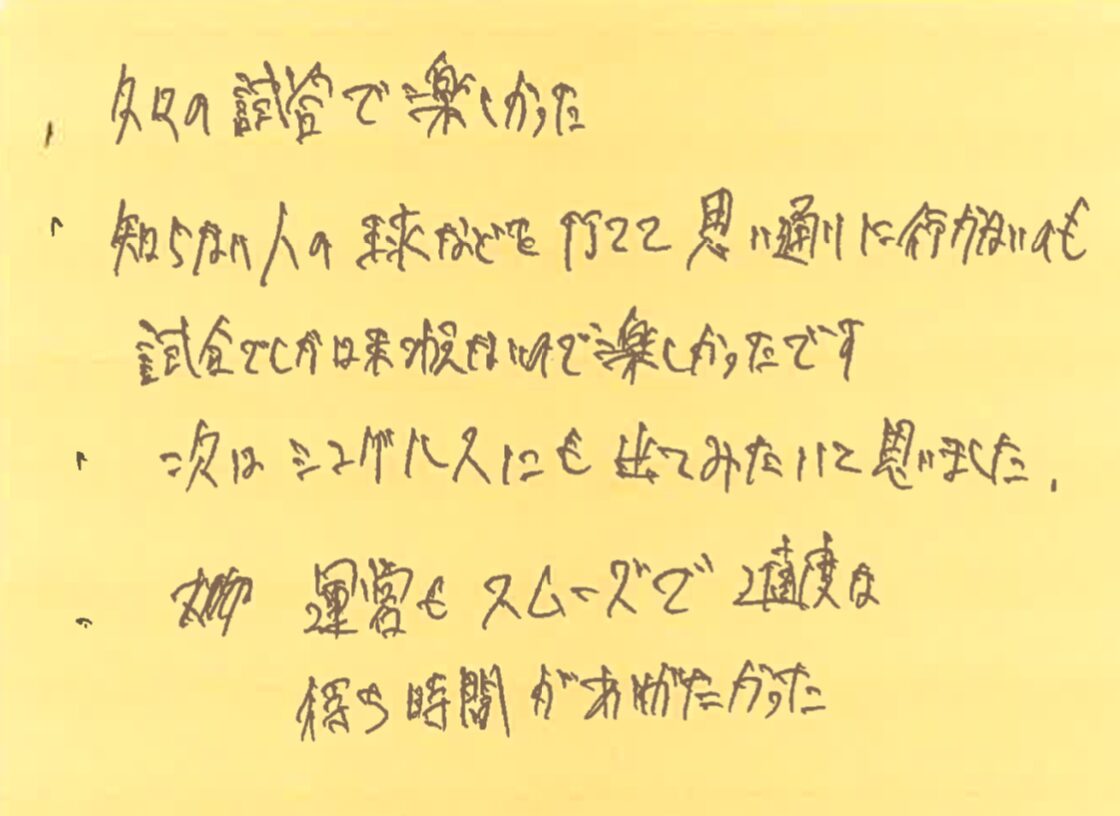 ・久々の試合で楽しかった
・知らない人の球などを打てて思い通りに行かないのも
試合でしか味わえないので楽しかったです
・次はシングルスにも出てみたいと思いました.
・運営もスムーズで適度な
待ち時間がありがたかった